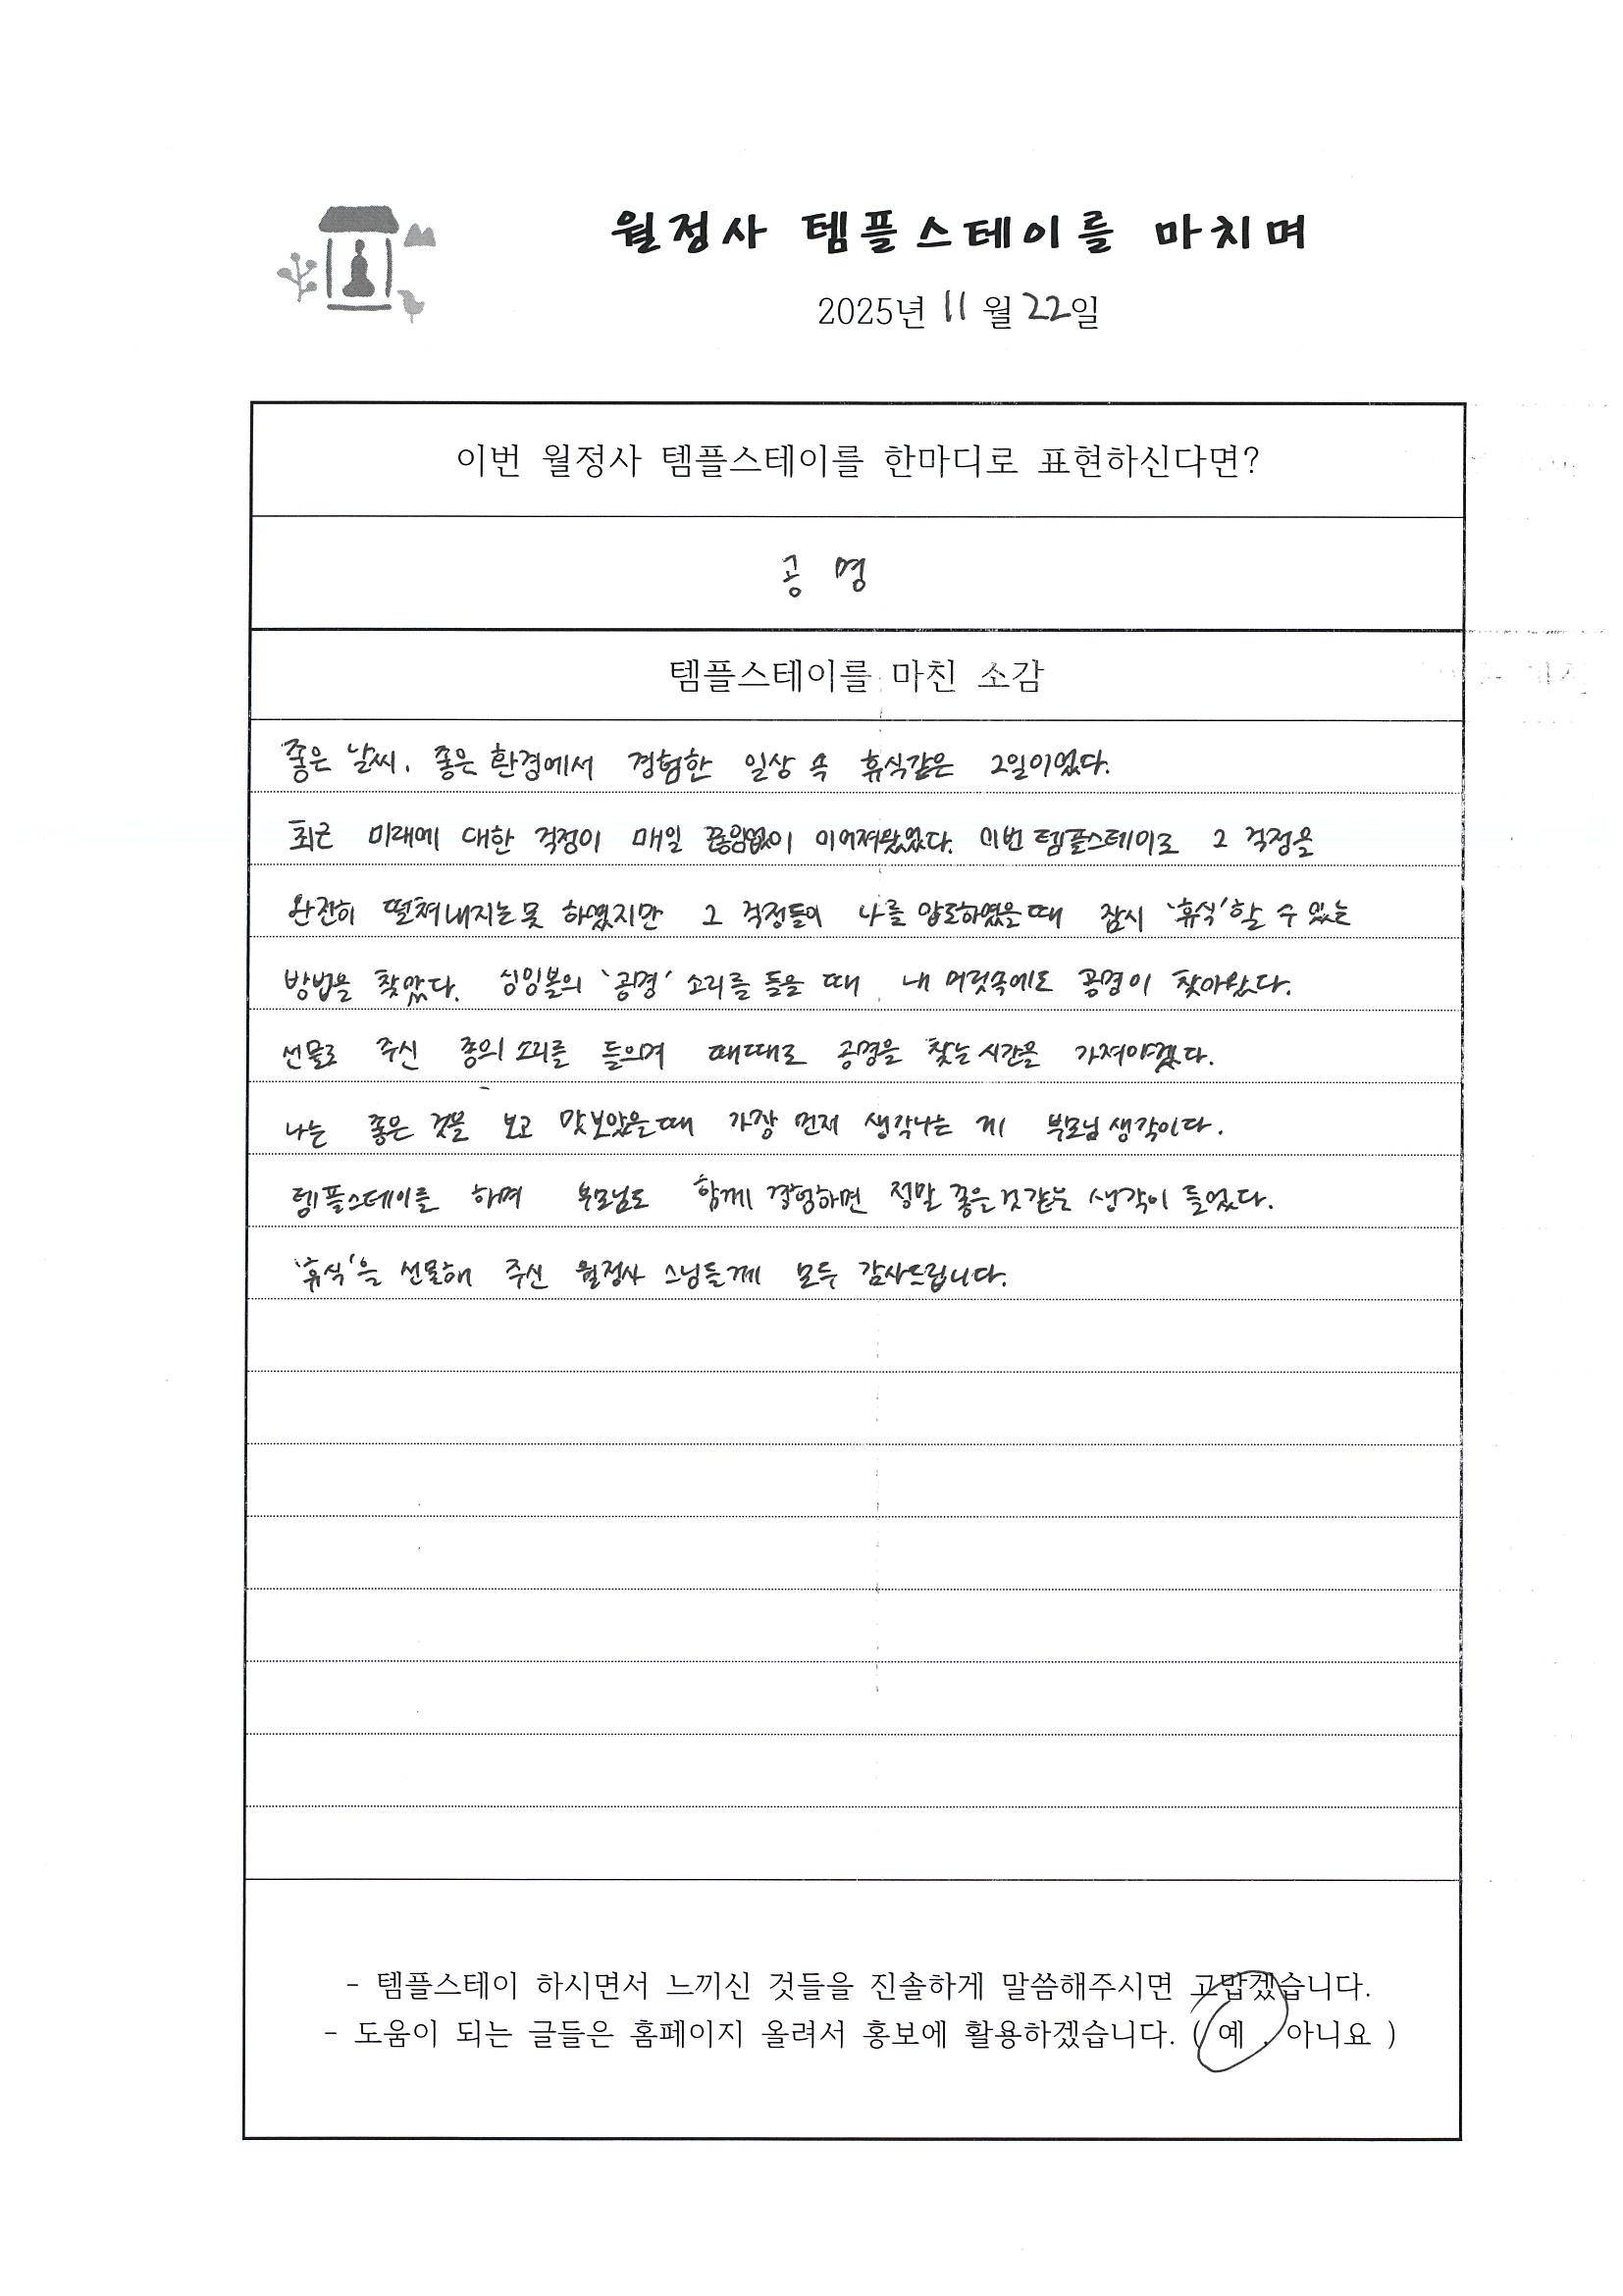 월정사 템플스테이를 마치며
2025년 11월 22일
이번 월정사 템플스테이를 한마디로 표현하신다면?
공 명
템플스테이를 마친 소감
좋은 날씨, 좋은 환경에서 경험한 일상 속 휴식같은 2일이었다.
최근 미래에 대한 걱정이 매일 끊임없이 이어져왔었다. 이번 템플스테이로 그 걱정을
완전히 떨쳐내지는 못 하였지만 그 걱정들이 나를 압도하였을때 잠시 '휴식'할 수 있는
방법을 찾았다. 싱잉볼의 '공명' 소리를 들을 때 내 머릿속에도 공명이 찾아왔다.
선물로 주신 종의 소리를 들으며 때때로 공명을 찾는 시간을 가져야겠다.
나는 좋은 것을 보고 맛보았을때 가장 먼저 생각나는 게 부모님 생각이다.
템플스테이를 하며 부모님도 함께 경험하면 정말 좋을것같는 생각이 들었다.
'휴식'을 선물해 주신 월정사 스님들께 모두 감사드립니다.
- 템플스테이 하시면서 느끼신 것들을 진솔하게 말씀해주시면 고맙겠습니다.
- 도움이 되는 글들은 홈페이지 올려서 홍보에 활용하겠습니다. ( 예 . 아니요 )